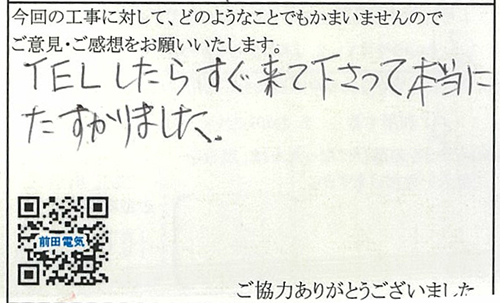 今回の工事に対して、どのようなことでもかまいませんので
ご意見・ご感想をお願いいたします。
TELしたらすぐ来て下さって本当に
たすかりました。
前田電気
ご協力ありがとうございました